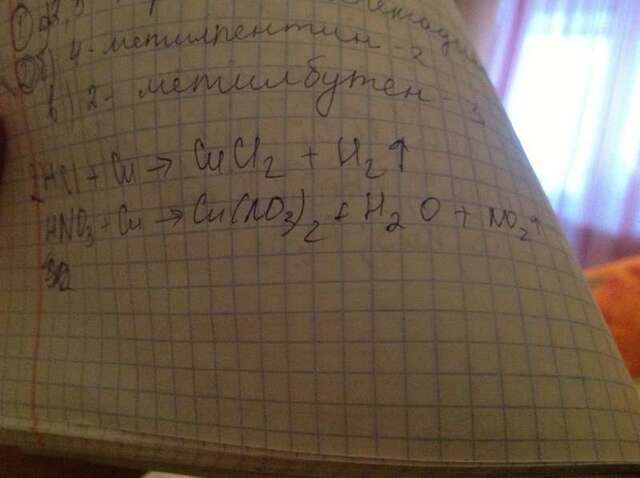 ① 2,3
② б) 4-метилпентин-2
в) 2-метилбутен-3
2HCl + Cu → CuCl2 + H2↑
HNO3 + Cu → Cu(NO3)2 + H2O + NO2↑